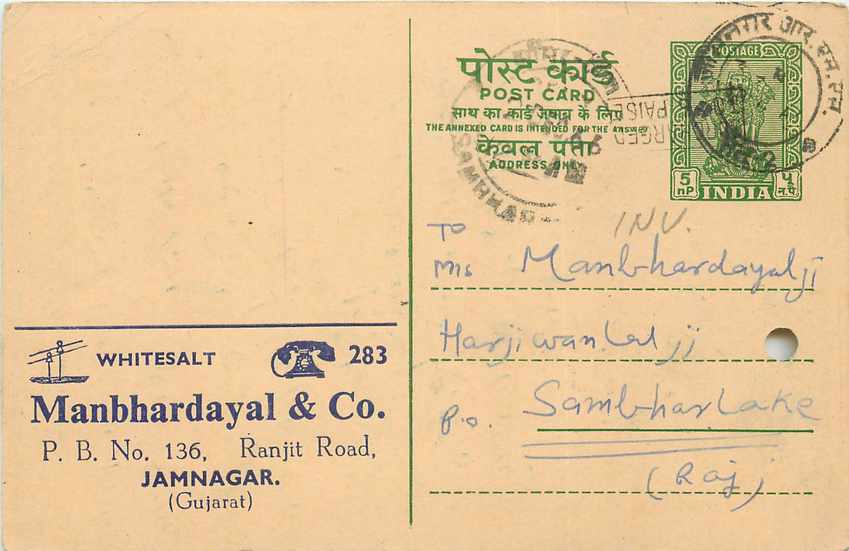 पोस्ट कार्ड
POST CARD
साथ का कार्ड जवाब के लिए
THE ANNEXED CARD IS INTENDED FOR THE ANSWER
केवल पता
ADDRESS ONLY
POSTAGE
5 nP INDIA ५ न.प.
आर.एम.एस.
PAISE
SAMBHAR
INV.
To
M/s Manbhardayalji
Harjiwanlalji
P.O. Sambharlake
(Raj)
WHITESALT 283
Manbhardayal & Co.
P. B. No. 136, Ranjit Road,
JAMNAGAR.
(Gujarat)